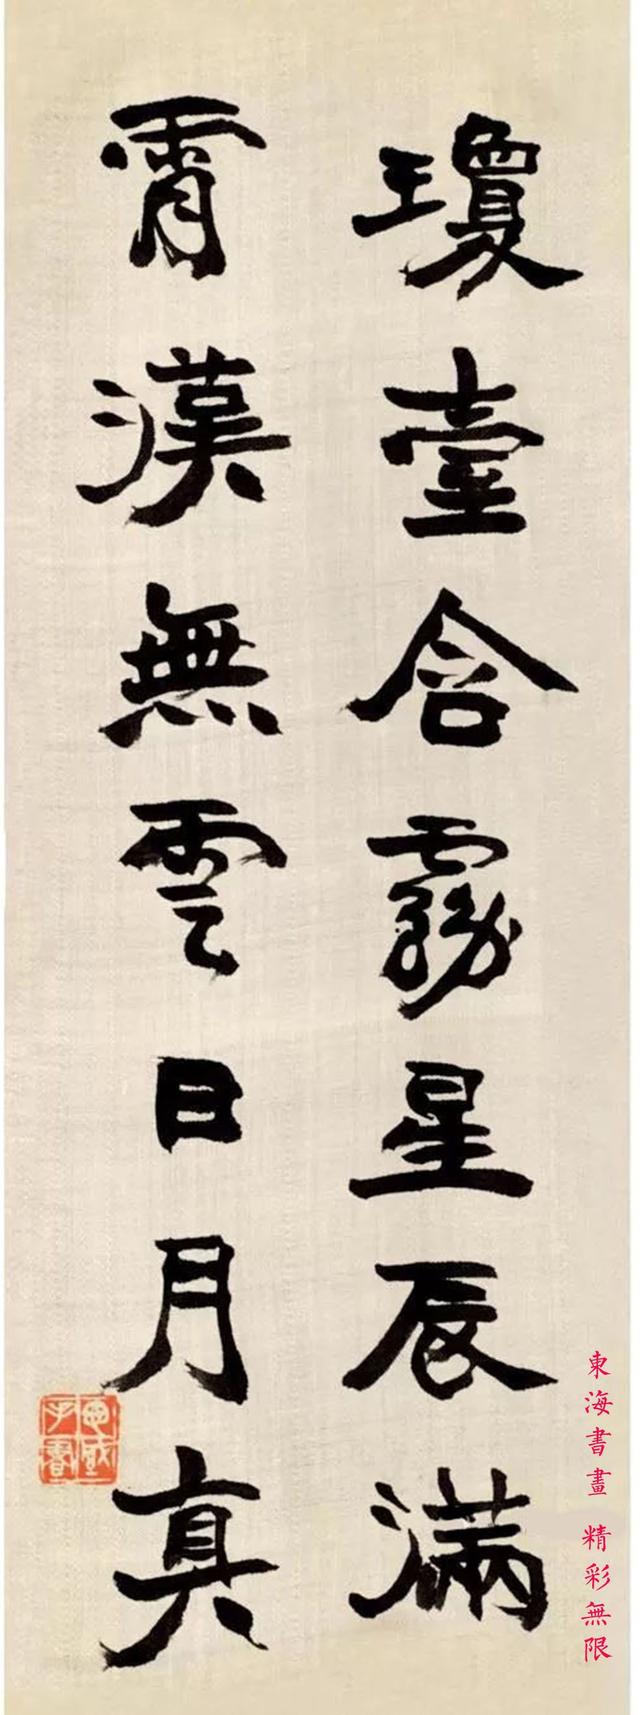 瓊臺含霧星辰滿
霄漢無雲日月真
東海書畫 精彩無限